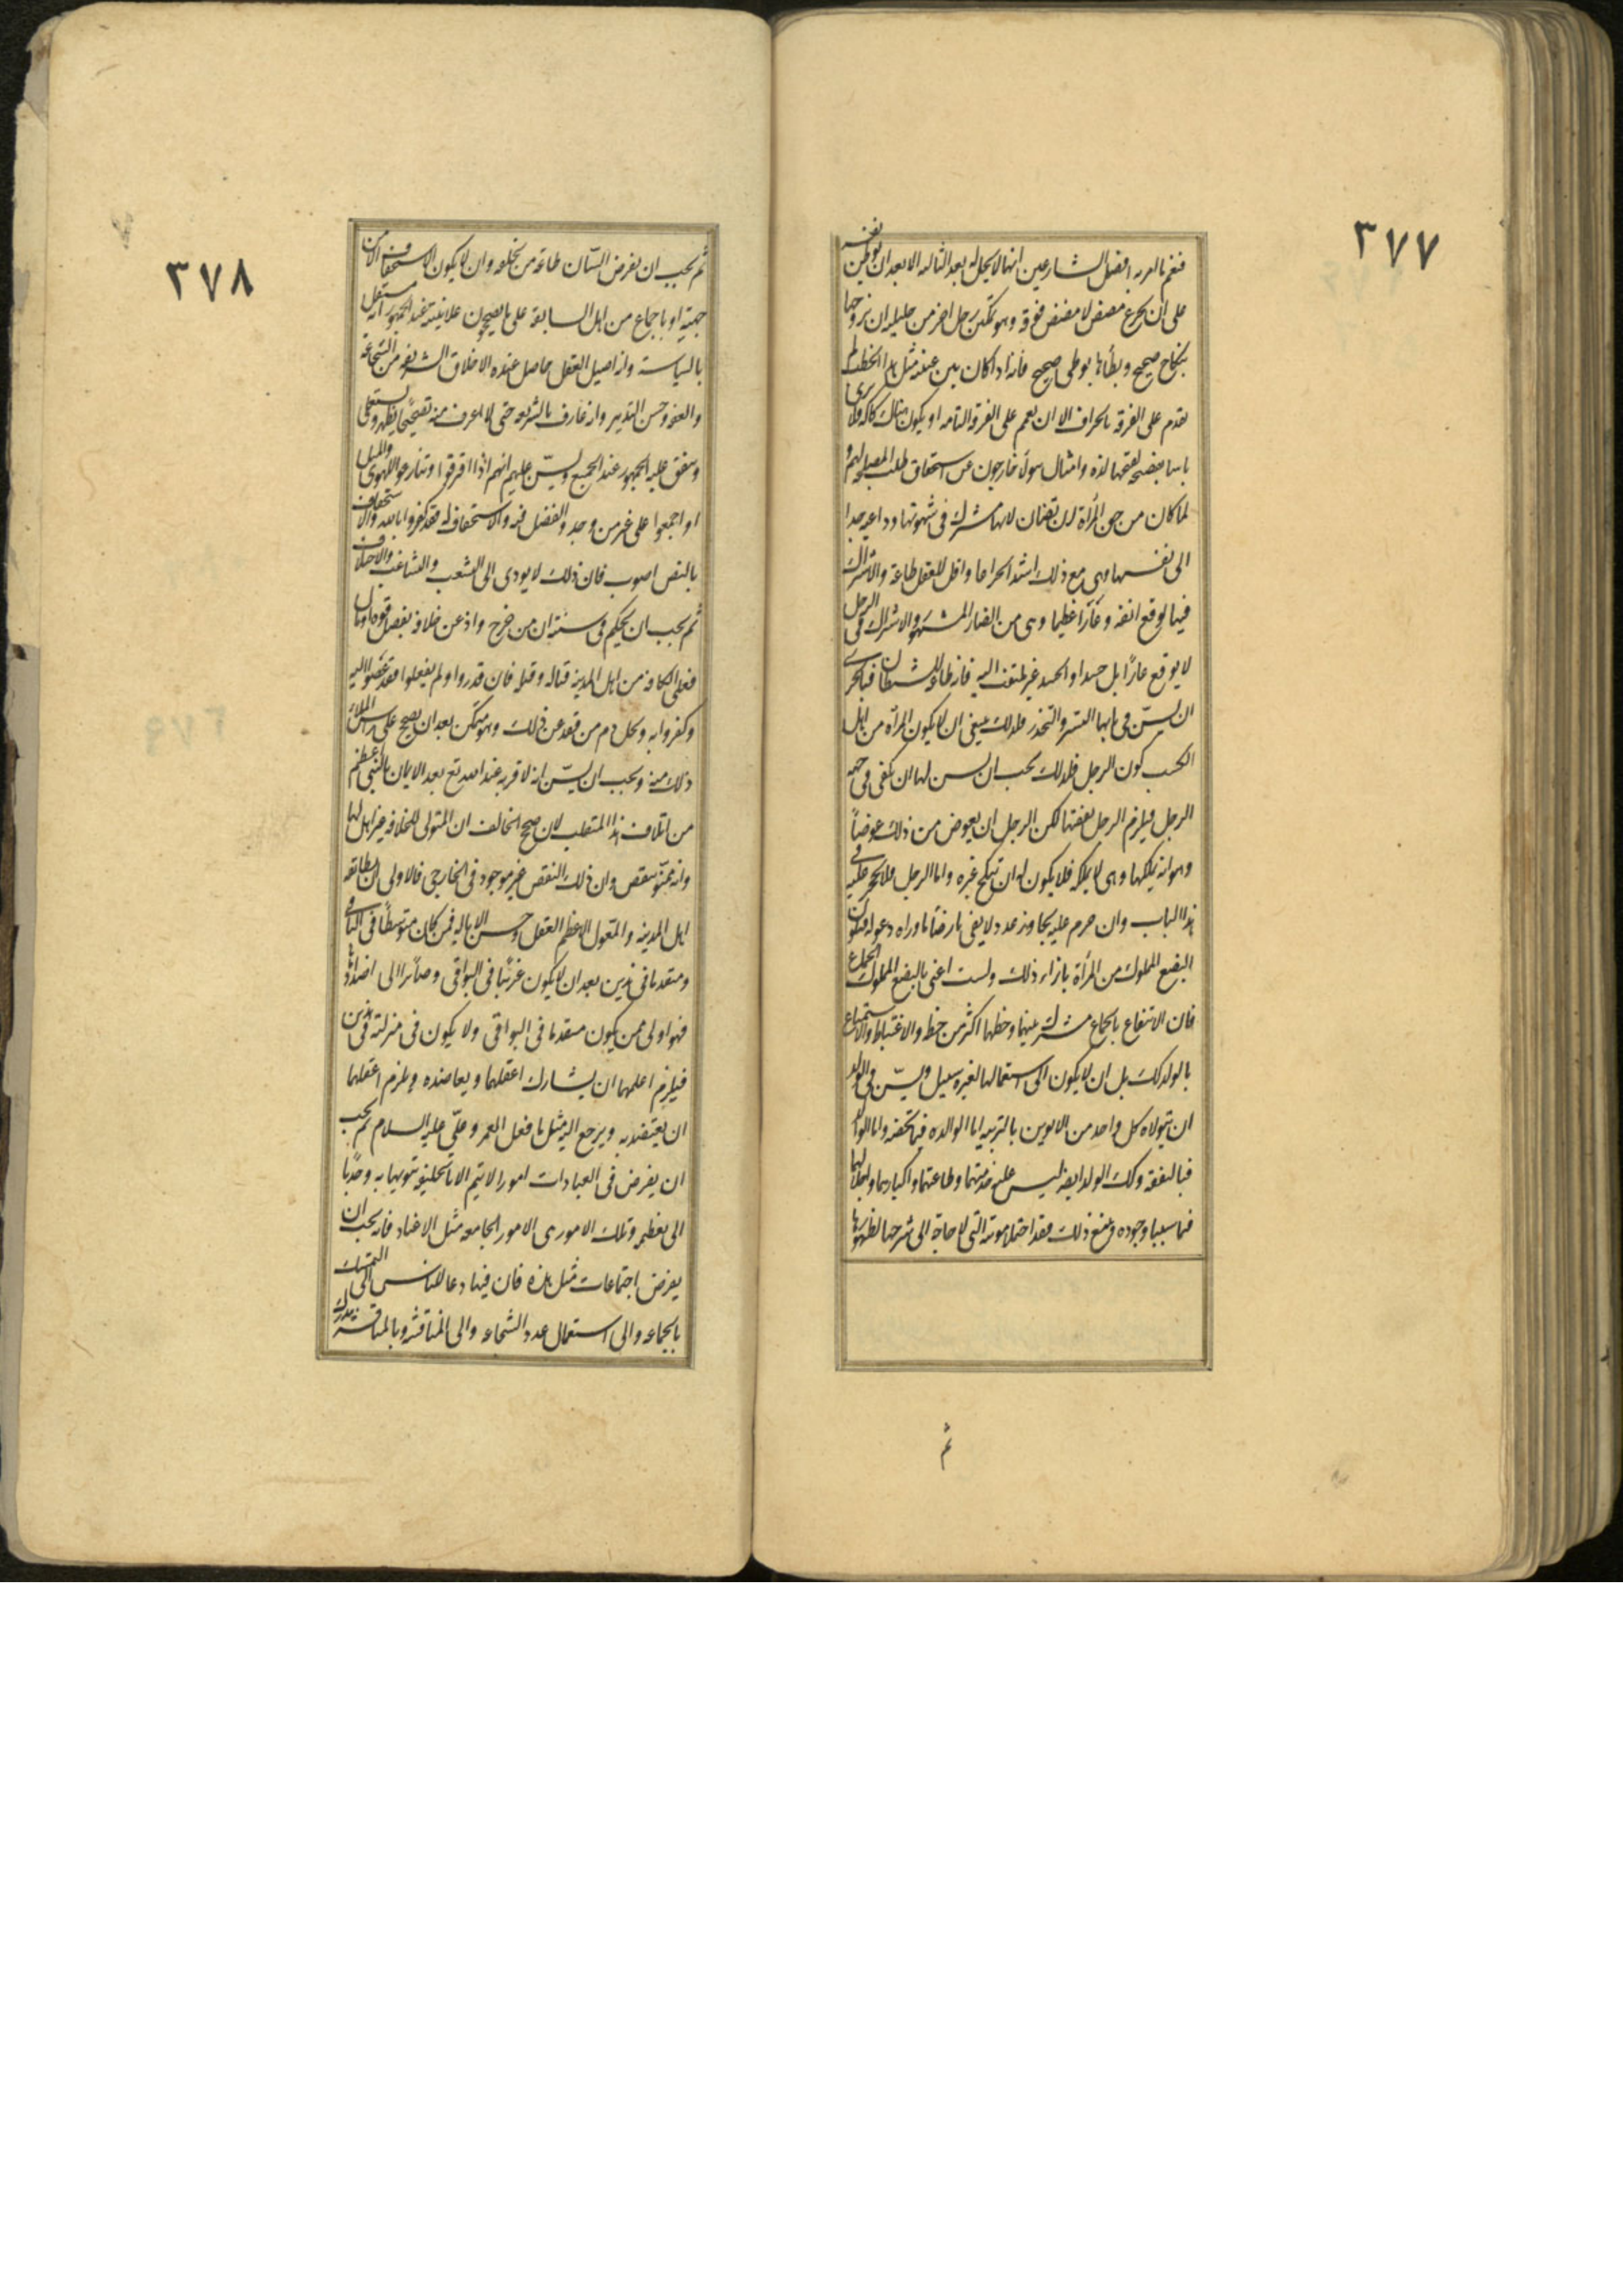 ٣٧٧
فنعم ما امر به افضل الشارعين انها لا يحل له بعد الثالثة الا بعد ان يوطن نفسه
على ان يتجرع مضض لا مضض فوقه وهو تمكين رجل اخر من حليلته ان يتزوجها
بنكاح صحيح ويطأها بوطى صحيح فانه اذا كان بين عينيه مثل هذا الخطب لم
يقدم على الفرقة بالجزاف الا ان يصمم على الفرقة التامة او يكون هناك ركاكة فلا يرى
باسا بفضيحة تصحبها لذة وامثال هولاء خارجون عن استحقاق طلب المصلحة لهم و
لما كان من حق المرأة ان تصان لانها مشتركة فى شهوتها وداعية جدا
الى نفسها وهى مع ذلك اشد انخداعا واقل للعقل طاعة والاشتراك
فيها يوقع انفة وعارًا عظيما وهى من المضار المشهورة والاشتراك فى الرجل
لا يوقع عارًا بل حسدا والحسد غير ملتفت اليه فانه طاعة للشيطان فبالحرى
ان يسنّ فى بابها التستر والتخدر فلذلك ينبغى ان لا يكون المرأة من اهل
الكسب كون الرجل فلذلك يجب ان يسن لها ان تكفى من جهة
الرجل فيلزم الرجل نفقتها لكن الرجل ان يعوض من ذلك عوضاً
وهو انه يملكها وهى لا يملكه فلا يكون لها ان تنكح غيره واما الرجل فلا يحجر عليه فى
هذا الباب وان حرم عليه تجاوز عدد لا يفى بارضاء ما وراه وعوله فيكون
البضع المملوك من المرأة بازاء ذلك ولست اعنى بالبضع المملوك الجماع
فان الانتفاع بالجماع مشترك بينهما وحظها اكثر من حظه والاغتباط والاستمتاع
بالولد كذلك بل ان لا يكون الى استعمالها لغيره سبيل ويسنّ فى الولد
ان يتولاه كل واحد من الابوين بالتربية اما الوالدة فيما تخصه واما الوالد
فبالنفقة وكذلك الولد ايضا يسن عليه خدمتهما وطاعتهما واكبارهما واجلالهما
فهما سببا وجوده ومع ذلك فقد احتملا مونته التى لا حاجة الى شرحها لظهورها
ثم
٣٧٨
ثم يجب ان يفرض السانّ طاعة من يخلفه وان لا يكون الاستخلاف الا من
جهته او باجماع من اهل السابقة على من يصححون علانيته عند الجمهور انه مستقل
بالسياسة وانه اصيل العقل حاصل عنده الاخلاق الشريفة من الشجاعة
والعفة وحسن التدبير وانه عارف بالشريعة حتى لا اعرف منه تصحيحًا يظهر ويستعلى
ويتفق عليه الجمهور عند الجميع ويسنّ عليهم انهم اذا افترقوا او تنازعوا للهوى والميل
او اجمعوا على غير من وجد والفضل فيه والاستحقاق له فقد كفروا بالله والاستخلاف
بالنص اصوب فان ذلك لا يودى الى التشعب والتشاغب والاختلاف
ثم يجب ان يحكم فى سنته ان من خرج وادعى خلافته بفضل قوة او مال
فعلى الكافة من اهل المدينة قتاله وقتله فان قدروا ولم يفعلوا فقد عصوا الله
وكفروا به ويحل دم من قعد عن ذلك وهو متمكن بعد ان يصحح على رأس الملاء
ذلك منه ويجب ان يسنّ انه لا قربة عند الله تع بعد الايمان بالنبى اعظم
من اتلاف هذا المتغلب فان صحح الخالف ان المتولى للخلافة غير اهل لها
وانه ممنوّ بنقص وان ذلك النقص غير موجود فى الخارجى فالاولى ان يطابقه
اهل المدينة والمعول الاعظم العقل وحسن الايالة فمن كان متوسطًا فى الباقى
ومتقدما فى هذين بعد ان لا يكون غريبًا فى البواقى وصائرا الى اضدادها
فهو اولى ممن يكون متقدما فى البواقى ولا يكون فى منزلته فى هذين
فيلزم اعلمهما ان يشارك اعقلهما ويعاضده ويلزم اعقلهما
ان يعتضد به ويرجع اليه مثل ما فعل العمر وعلىّ عليه السلام ثم يجب
ان يفرض فى العبادات امور لا يتم الا بالخليفة تنويها به وجذبا
الى تعظيمه وتلك الامور هى الامور الجامعة مثل الاعياد فانه يجب ان
يفرض اجتماعات مثل هذه فان فيها دعاء للناس الى التمسك
بالجماعة والى استعمال عدد الشجاعة والى المنافسة وبالمنافسة يدرك